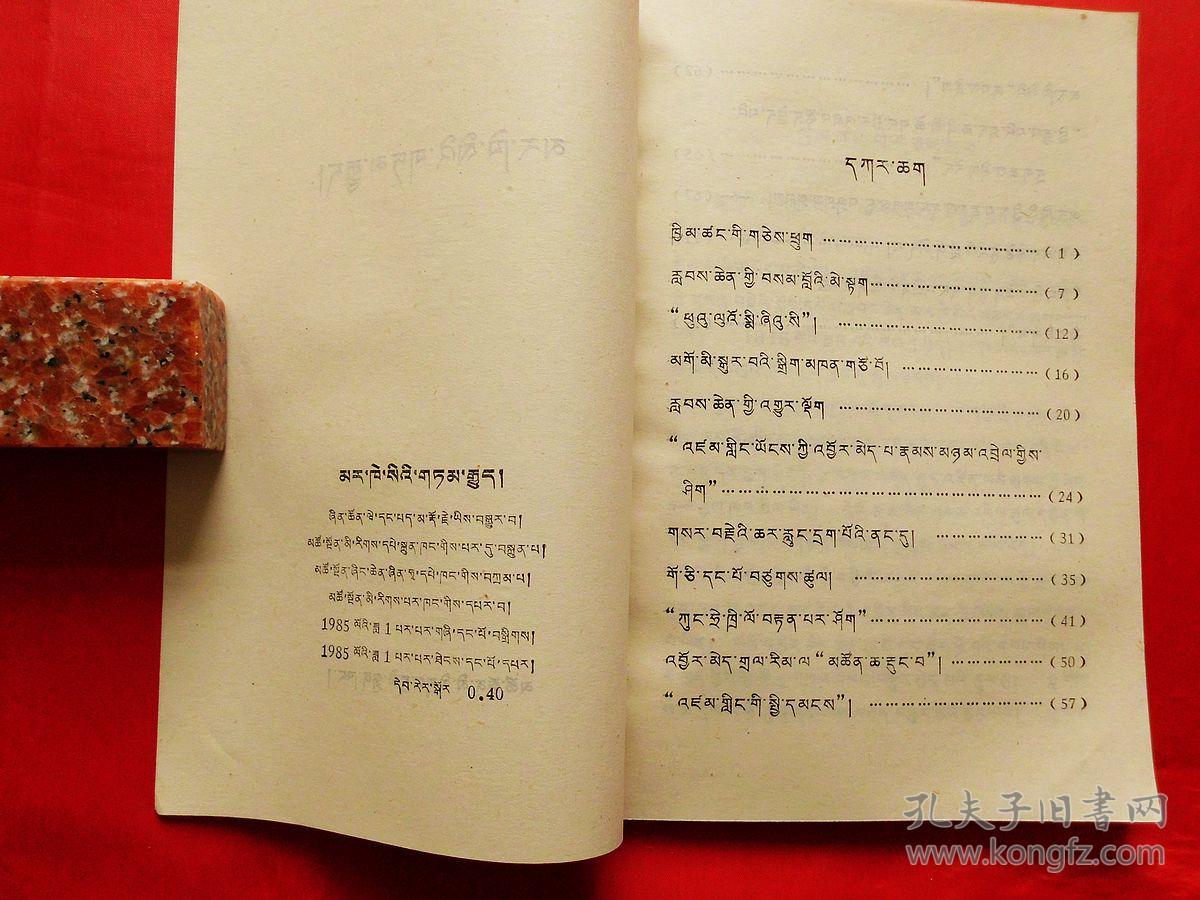 མར་ཁེ་སིའི་གཏམ་རྒྱུད།
ཞིན་ཚོན་ལེ་དང་པད་མ་རྡོ་རྗེ་ཡིས་བསྒྱུར་བ།
མཚོ་སྔོན་མི་རིགས་དཔེ་སྐྲུན་ཁང་གིས་པར་དུ་བསྐྲུན་པ།
མཚོ་སྔོན་ཞིང་ཆེན་ཞིན་ཧྭ་དཔེ་ཁང་གིས་བཀྲམ་པ།
མཚོ་སྔོན་མི་རིགས་པར་ཁང་གིས་དཔར་བ།
1985 ལོའི་ཟླ་ 1 པར་པར་གཞི་དང་པོ་བསྒྲིགས།
1985 ལོའི་ཟླ་ 1 པར་པར་ཐེངས་དང་པོ་དཔར།
དེབ་རེར་སྒོར 0.40
དཀར་ཆག
ཁྱིམ་ཚང་གི་གཅེས་ཕྲུག ……………………………… (1)
རླབས་ཆེན་གྱི་བསམ་བློའི་མེ་སྟག……………………… (7)
“ཕུའུ་ལུའོ་སྨི་ཞིའུ་སི”། ……………………………… (12)
མགོ་མི་སྒུར་བའི་སྒྲིག་མཁན་གཙོ་བོ། ……………………… (16)
རླབས་ཆེན་གྱི་འགྱུར་ལྡོག ……………………………… (20)
“འཛམ་གླིང་ཡོངས་ཀྱི་འབྱོར་མེད་པ་རྣམས་མཉམ་འབྲེལ་གྱིས་
ཤིག” ……………………………………………… (24)
གསར་བརྗེའི་ཆར་རླུང་དྲག་པོའི་ནང་དུ། ……………… (31)
གོ་ཅི་དང་པོ་བཙུགས་ཚུལ། ……………………………… (35)
“ཀུང་ཧྲེ་ཁྲི་ལོ་བརྟན་པར་ཤོག” …………………………… (41)
འབྱོར་མེད་གྲལ་རིམ་ལ “མཚོན་ཆ་རྡུང་བ”། ……………… (50)
“འཛམ་གླིང་གི་སྤྱི་དམངས”། …………………………… (57)
孔夫子旧书网
www.kongfz.com